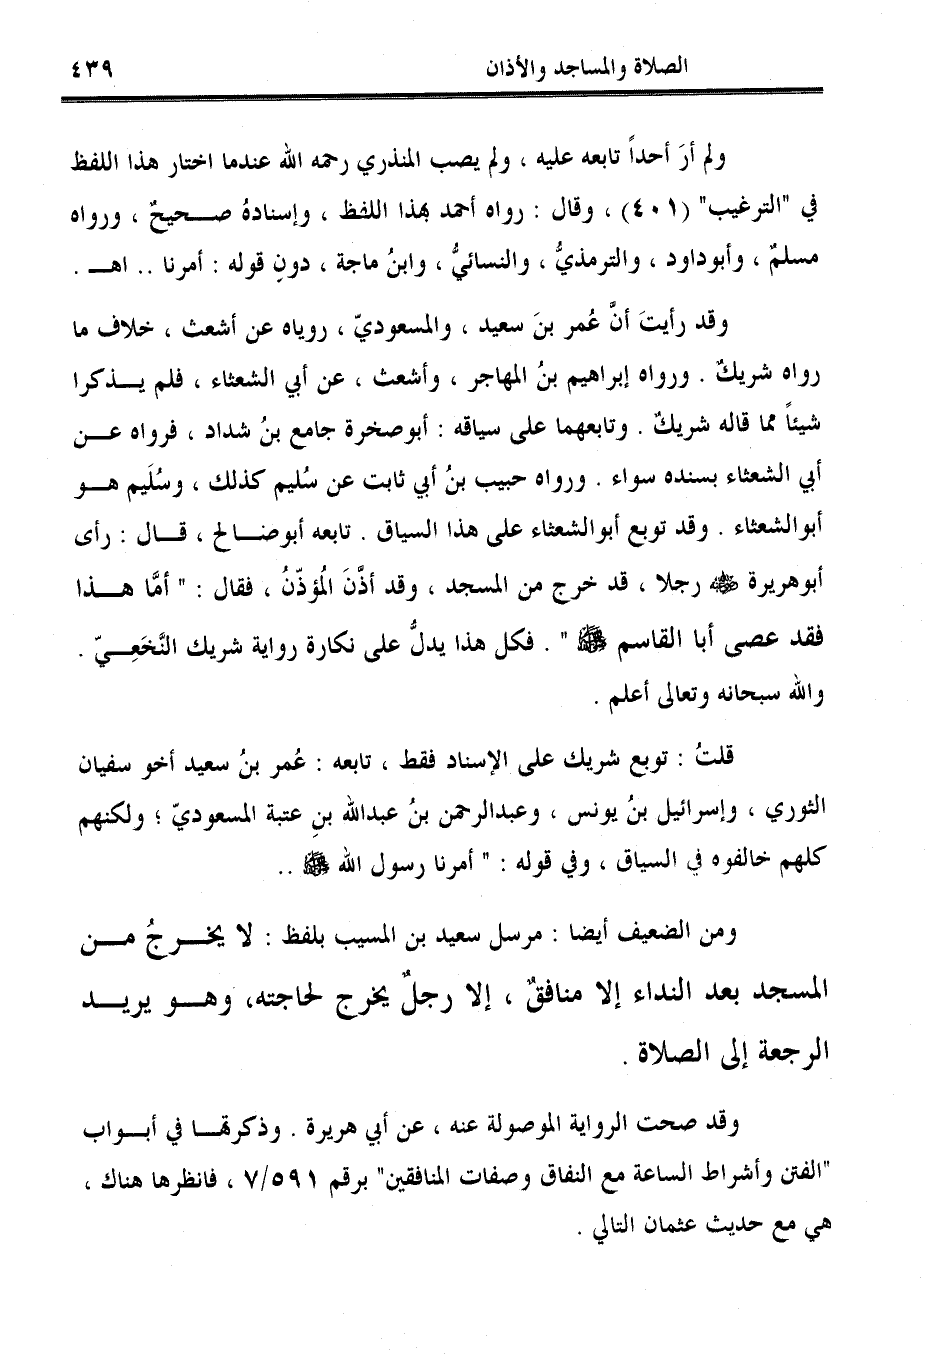 الصلاة والمساجد والأذان ٤٣٩
ولم أرَ أحداً تابعه عليه ، ولم يصب المنذري رحمه الله عندما اختار هذا اللفظ
في "الترغيب" (٤٠١) ، وقال : رواه أحمد بهذا اللفظ ، وإسنادهُ صـــحيحٌ ، ورواه
مسلمٌ ، وأبوداود ، والترمذيُّ ، والنسائيُّ ، وابنُ ماجة ، دونِ قوله : أمرنا .. اهـــ .
وقد رأيتَ أنَّ عُمر بنَ سعيد ، والمسعوديّ ، روياه عن أشعث ، خلاف ما
رواه شريكٌ . ورواه إبراهيم بنُ المهاجر ، وأشعث ، عن أبي الشعثاء ، فلم يـــذكرا
شيئاً مما قاله شريكٌ . وتابعهما على سياقه : أبوصخرة جامع بنُ شداد ، فرواه عـــن
أبي الشعثاء بسنده سواء . ورواه حبيب بنُ أبي ثابت عن سُليم كذلك ، وسُلَيم هـــو
أبوالشعثاء . وقد توبع أبوالشعثاء على هذا السياق . تابعه أبوصـــالح ، قـــال : رأى
أبوهريرة ﷺ رجلا ، قد خرج من المسجد ، وقد أذَّنَ المُؤذّنُ ، فقال : " أمَّا هـــذا
فقد عصى أبا القاسم ﷺ " . فكل هذا يدلُّ على نكارة رواية شريك النَّخَعِـــيّ .
والله سبحانه وتعالى أعلم .
قلتُ : توبع شريك على الإسناد فقط ، تابعه : عُمر بنُ سعيد أخو سفيان
الثوري ، وإسرائيل بنُ يونس ، وعبدالرحمن بنُ عبدالله بنِ عتبة المسعوديّ ؛ ولكنهم
كلهم خالفوه في السياق ، وفي قوله : " أمرنا رسول الله ﷺ ..
ومن الضعيف أيضا : مرسل سعيد بن المسيب بلفظ : لا يخـــرجُ مـــن
المسجد بعد النداء إلا منافقٌ ، إلا رجلٌ يخرج لحاجته، وهـــو يريـــد
الرجعة إلى الصلاة .
وقد صحت الرواية الموصولة عنه ، عن أبي هريرة . وذكرتهـــا في أبـــواب
"الفتن وأشراط الساعة مع النفاق وصفات المنافقين" برقم ٧/٥٩١ ، فانظرها هناك ،
هي مع حديث عثمان التالي .